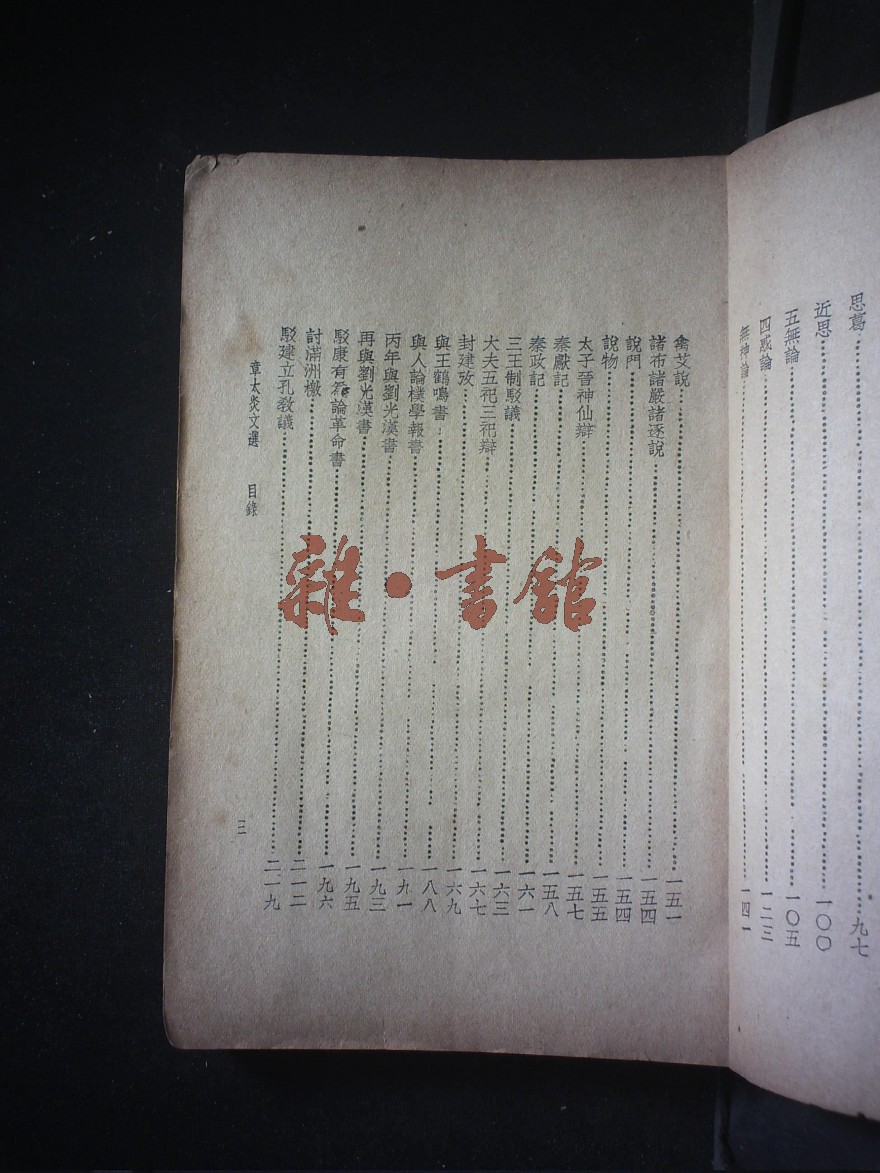 思葛⋯⋯九七
近思⋯⋯一〇〇
五無論⋯⋯一〇五
四惑論⋯⋯一二三
無神論⋯⋯一四一
禽艾說⋯⋯一五一
諸布諸嚴諸逐說⋯⋯一五四
說門⋯⋯一五四
說物⋯⋯一五五
太子晉神仙辯⋯⋯一五七
秦獻記⋯⋯一五八
秦政記⋯⋯一六一
三王制駁議⋯⋯一六三
大夫五祀三祀辯⋯⋯一六七
封建攷⋯⋯一六九
與王鶴鳴書⋯⋯一八八
與人論樸學報書⋯⋯一九一
丙午與劉光漢書⋯⋯一九三
再與劉光漢書⋯⋯一九五
駁康有為論革命書⋯⋯一九六
討滿洲檄⋯⋯二一二
駁建立孔敎議⋯⋯二一九
章太炎文選 目錄 三
雜·書館